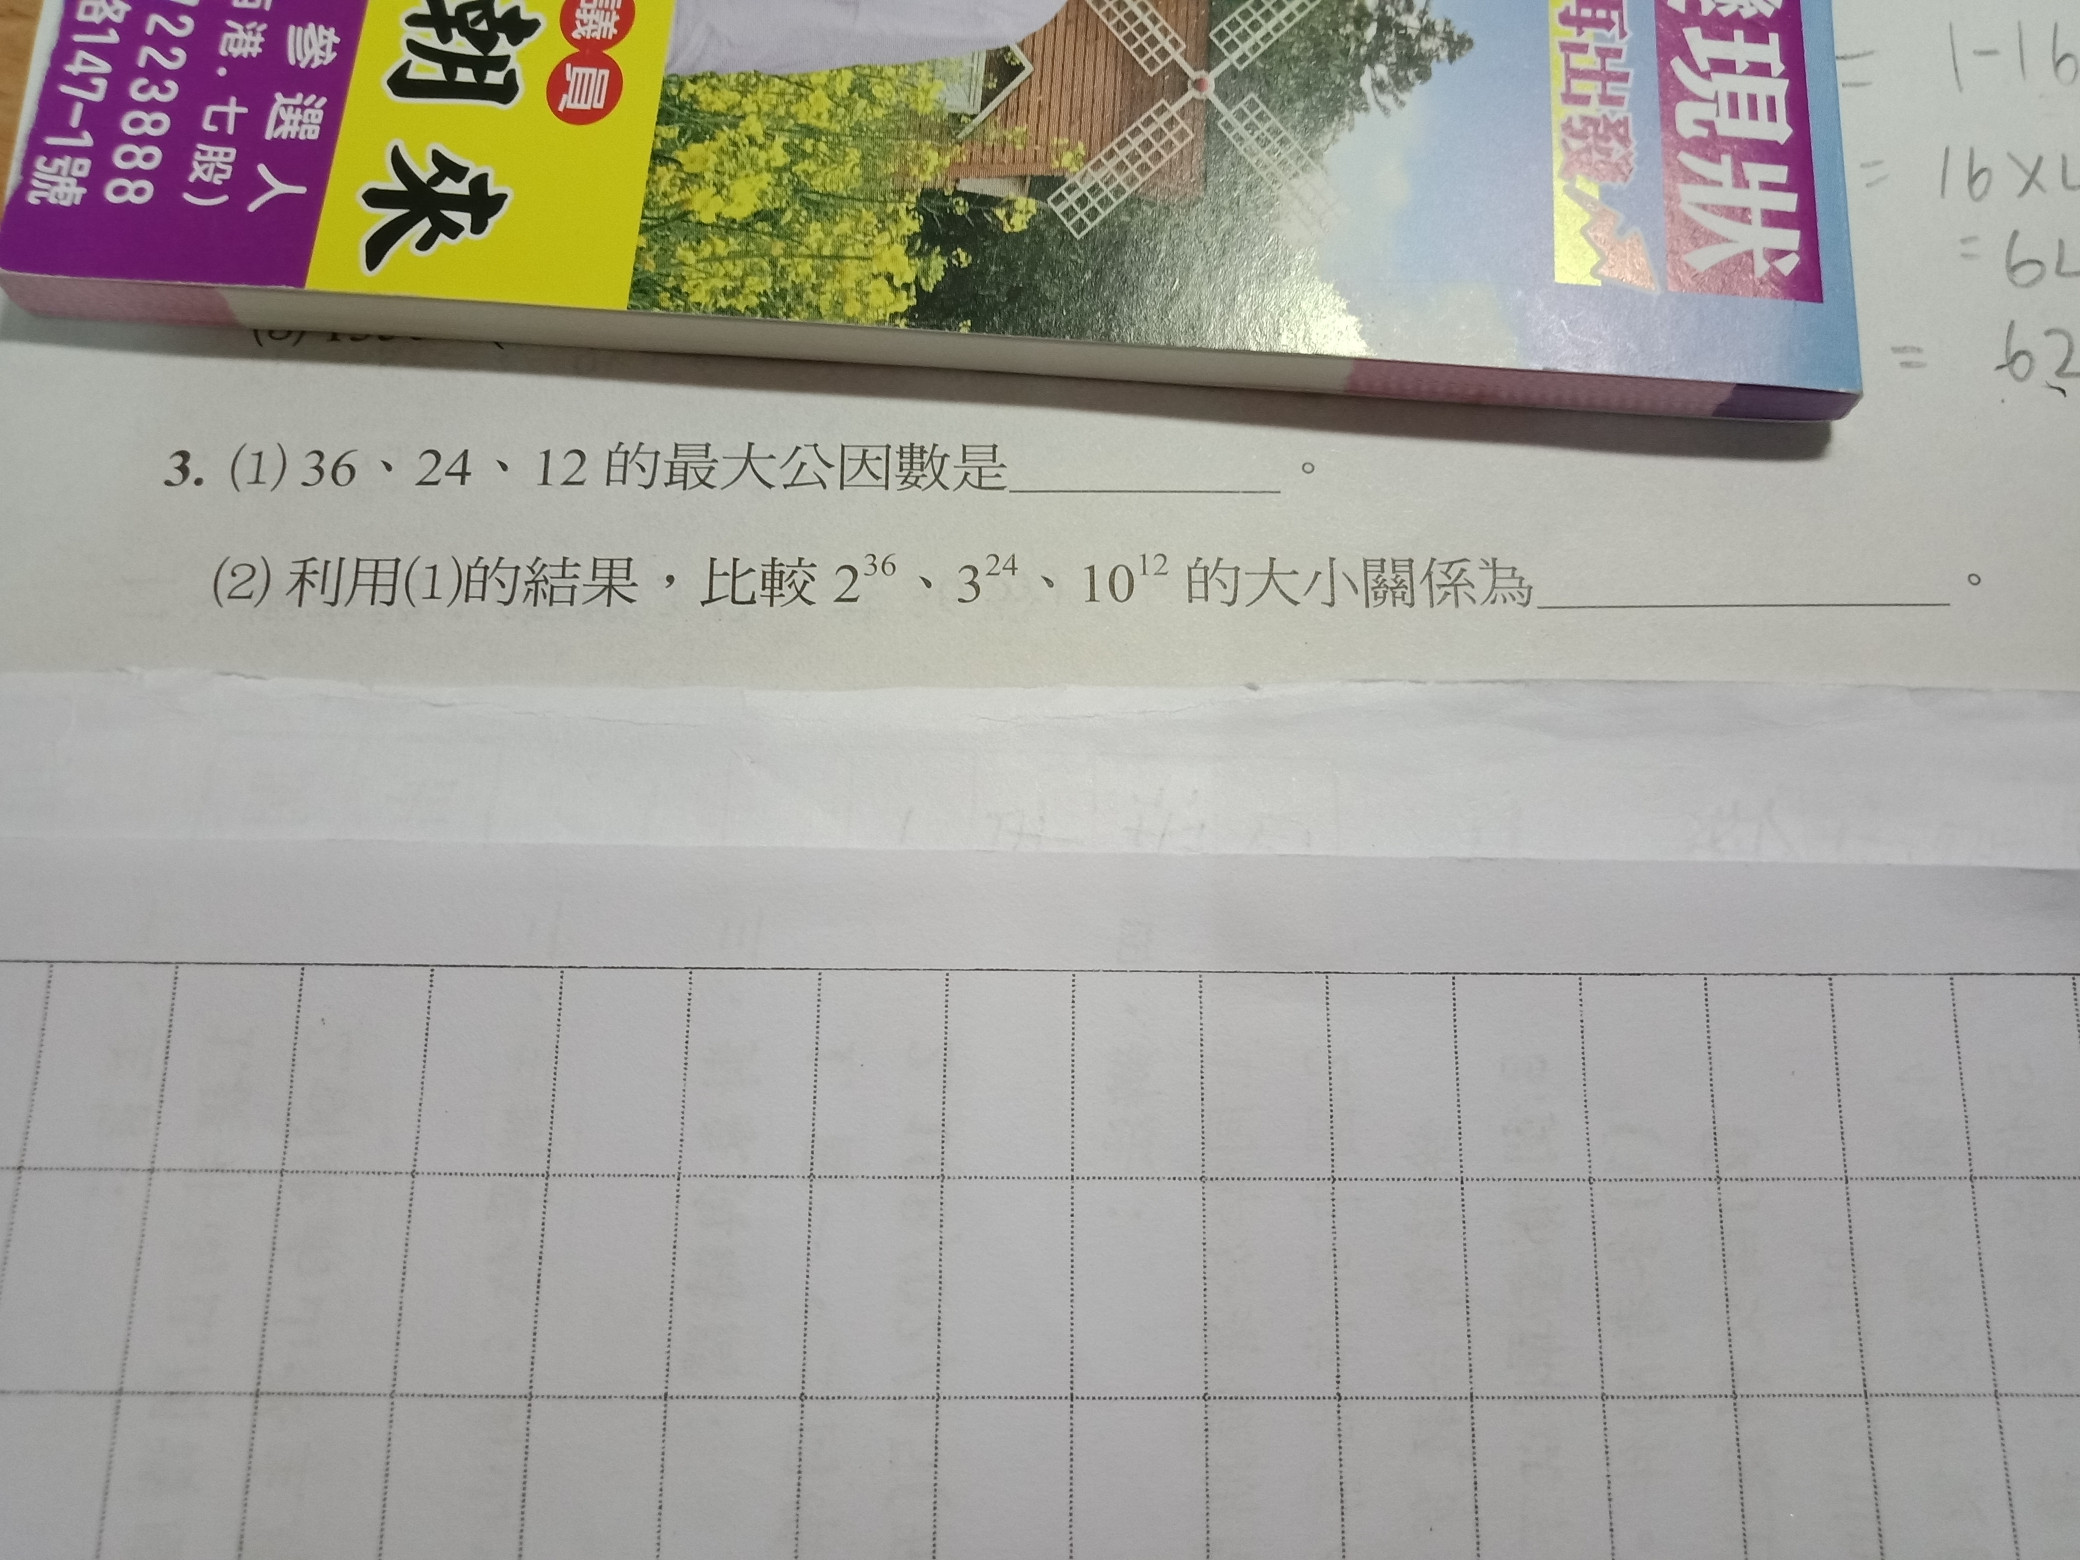 議員
朝來
參選人
七股)
223888
147-1號
現狀
再出發
91-1
=
= 16×
= 67
= 62
3. (1) 36、24、12 的最大公因數是__________。
(2) 利用(1)的結果，比較 2³⁶、3²⁴、10¹² 的大小關係為______________。